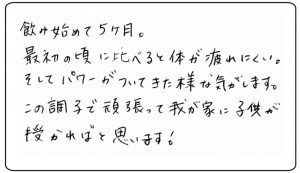 飲み始めて5ケ月。
最初の頃に比べると体が疲れにくい。
そしてパワーがついてきた様な気がします。
この調子で頑張って我が家に子供が
授かればと思います!